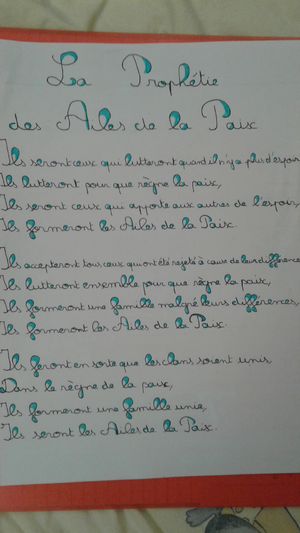 La Prophétie
des Ailes de la Paix
Ils seront ceux qui lutteront quand il n'y a plus d'espoir
Ils lutteront pour que règne la paix,
Ils seront ceux qui apporte aux autres de l'espoir,
Ils formeront les Ailes de la Paix.
Ils accepteront tous ceux qui ont été rejeté à cause de leurs différences
Ils lutteront ensemble pour que règne la paix,
Ils formeront une famille malgré leurs différences,
Ils formeront les Ailes de la Paix.
Ils feront en sorte que les clans soient unis,
Dans le règne de la paix,
Ils formeront une famille unie,
Ils seront les Ailes de la Paix.